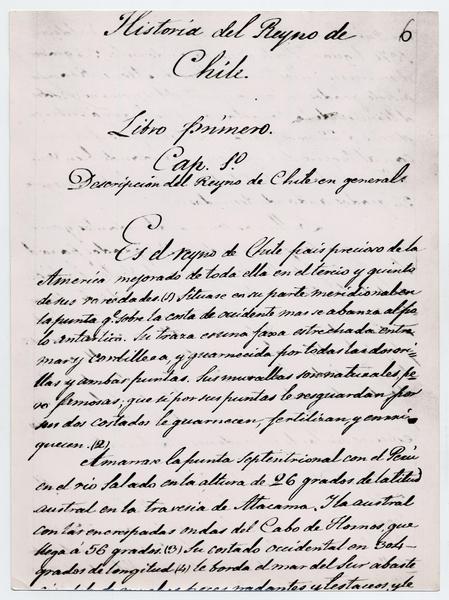 Historia del Reyno de
6
Chile.
Libro primero.
Cap. 1º
Descripcion del Reyno de Chile en general
Es el reyno de Chile pais precioso de la
America mejorado de toda ella en el tercio y quinto
de sus variedades. (1) Situase en su parte meridional en
la punta q.e sobre la costa de occidente mas se abanza al po-
lo antartico. Su traza es una faxa estrechada entre
mar y cordillera, y guarnecida por todas las dos ori-
llas y ambas puntas. Sus murallas son naturales, pe-
ro famosas; que si por sus puntas le resguardan por
sus dos costados le guarnecen, fertilizan y enrri-
quecen. (2)
Amarrase la punta septentrional con el Perú
en el rio Salado en la altura de 26 grados de latitud
austral en la travesia de Atacama. Y la austral
con las encrespadas ondas del Cabo de Hornos, que
llega á 56 grados. (3) Su costado occidental en 304
grados de longitud (4) le borda el mar del Sur abaste
peces nadantes y testaceos, y le